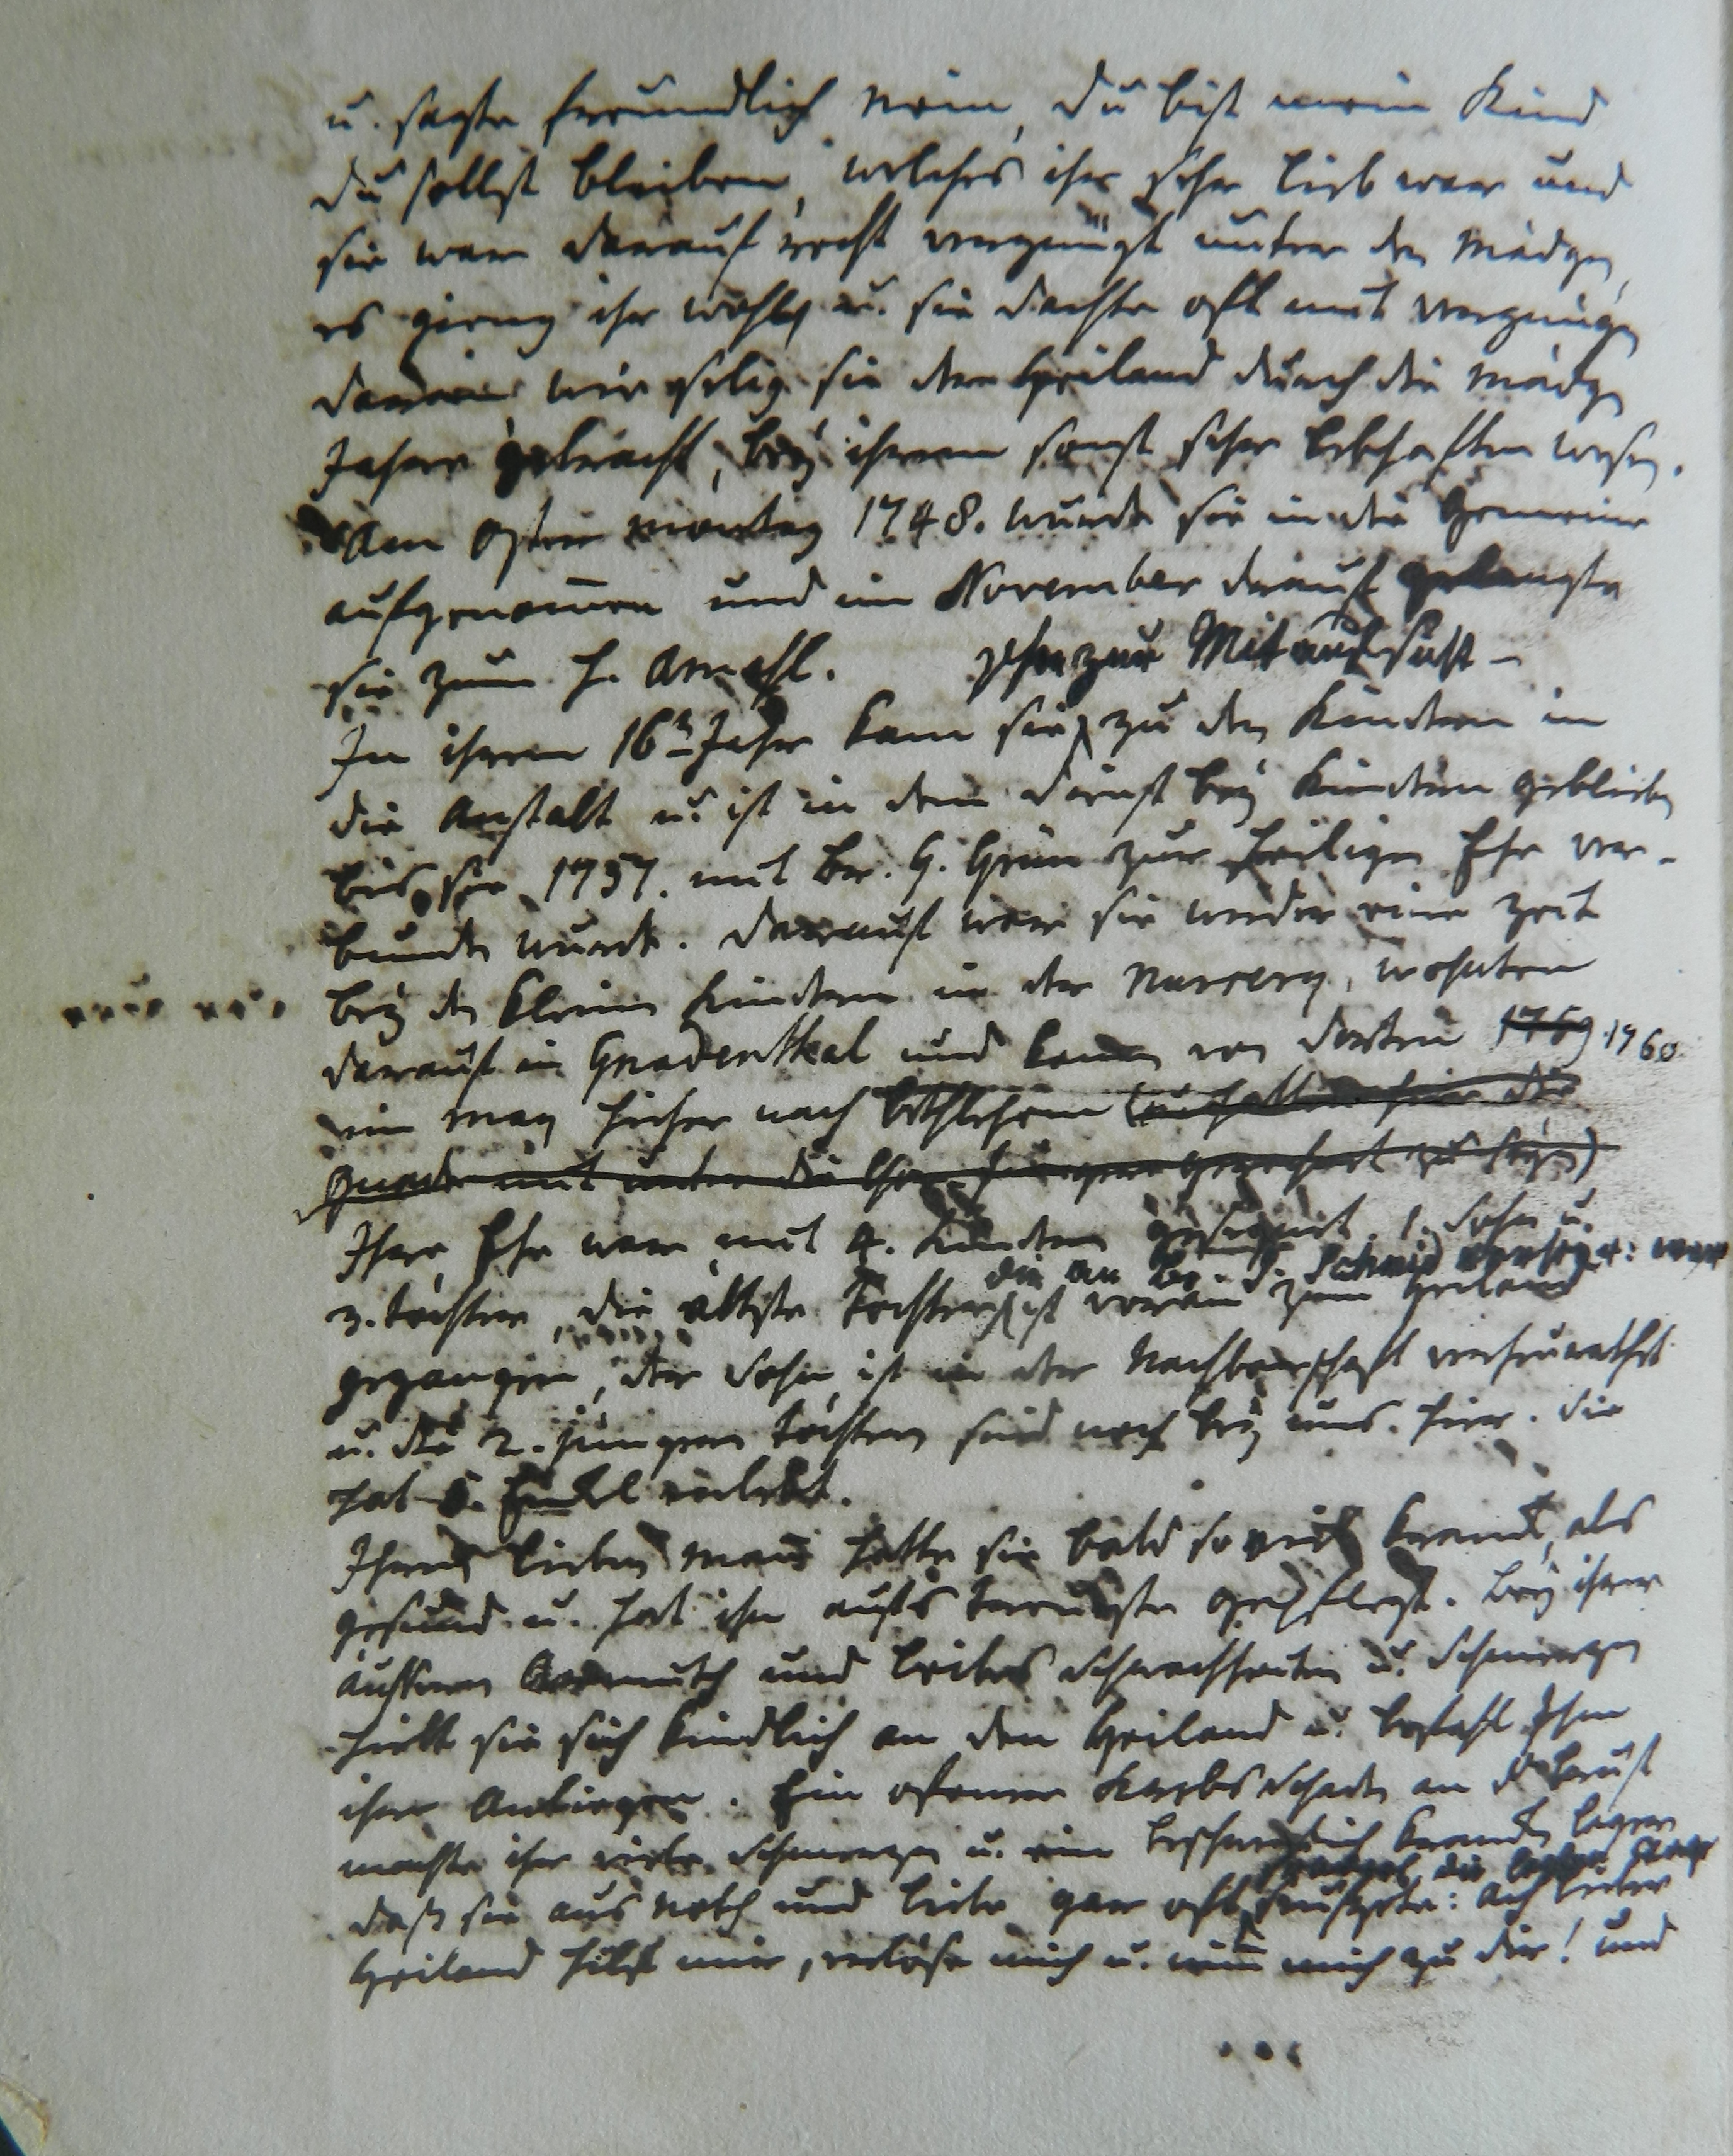 u. sagte freundlich Nein, du bist mein Kind
du sollst bleiben, welches ihr sehr lieb war und
sie war darauf recht vergnügt unter den Mädgen,
es gieng ihr wohl u. sie dachte oft mit vergnügen
daran wie selig sie der Heiland durch die Mädgen
Jahre gebracht, bey ihrem sonst sehr lebhaften wesen.
Am Oster montag 1748. wurde sie in die Gemeine
aufgenom̄en und im November drauf gelangte
sie zum H. Abendmahl.
zur Mitaufsicht
In ihrem 16n Jahr kam sie zu den Kindern in
die Anstalt u. ist in dem dienst bey Kindern geblieben
bis sie 1757. mit Br. G. Grün zur heiligen Ehe ver-
bunden wurde. Darauf war sie wieder eine Zeit
bey den kleinen Kindern in der Nursery, wohnten
darauf in Gnadenthal und kamen von dorten 1759 1760
im May hieher nach Bethlehem
Ihre Ehe war mit 4. Kindern gesegnet, 1. Sohn u.
die an Br. J. Schmid verheir: war
3. Töchter, die ältste Tochter ist voran zum Heiland
gegangen, der Sohn ist in der Nachbarschaft verheurathet
u. die 2. jüngern Töchter sind noch bey uns hier. Sie
hat 5. Enkel erlebt.
Ihren lieben Mann hatte sie bald so viel krank, als
gesund u. hat ihn aufs treulichste gepflegt. Bey ihrer
äussern Armuth und Leibes Schwachheiten u. Schmerzen
hielt sie sich kindlich an den Heiland u. befahl Ihm
ihr Anliegen. Ein offener Krebs Schaden an der Brust
machte ihr viele Schmerzen u. ein beschwerlich kranken lager
die letzten Tage
daß sie aus Noth und Liebe gar oft seufzete: Ach lieber
Heiland hilf mir, erlöse mich u. nim̄ mich zu dir! und